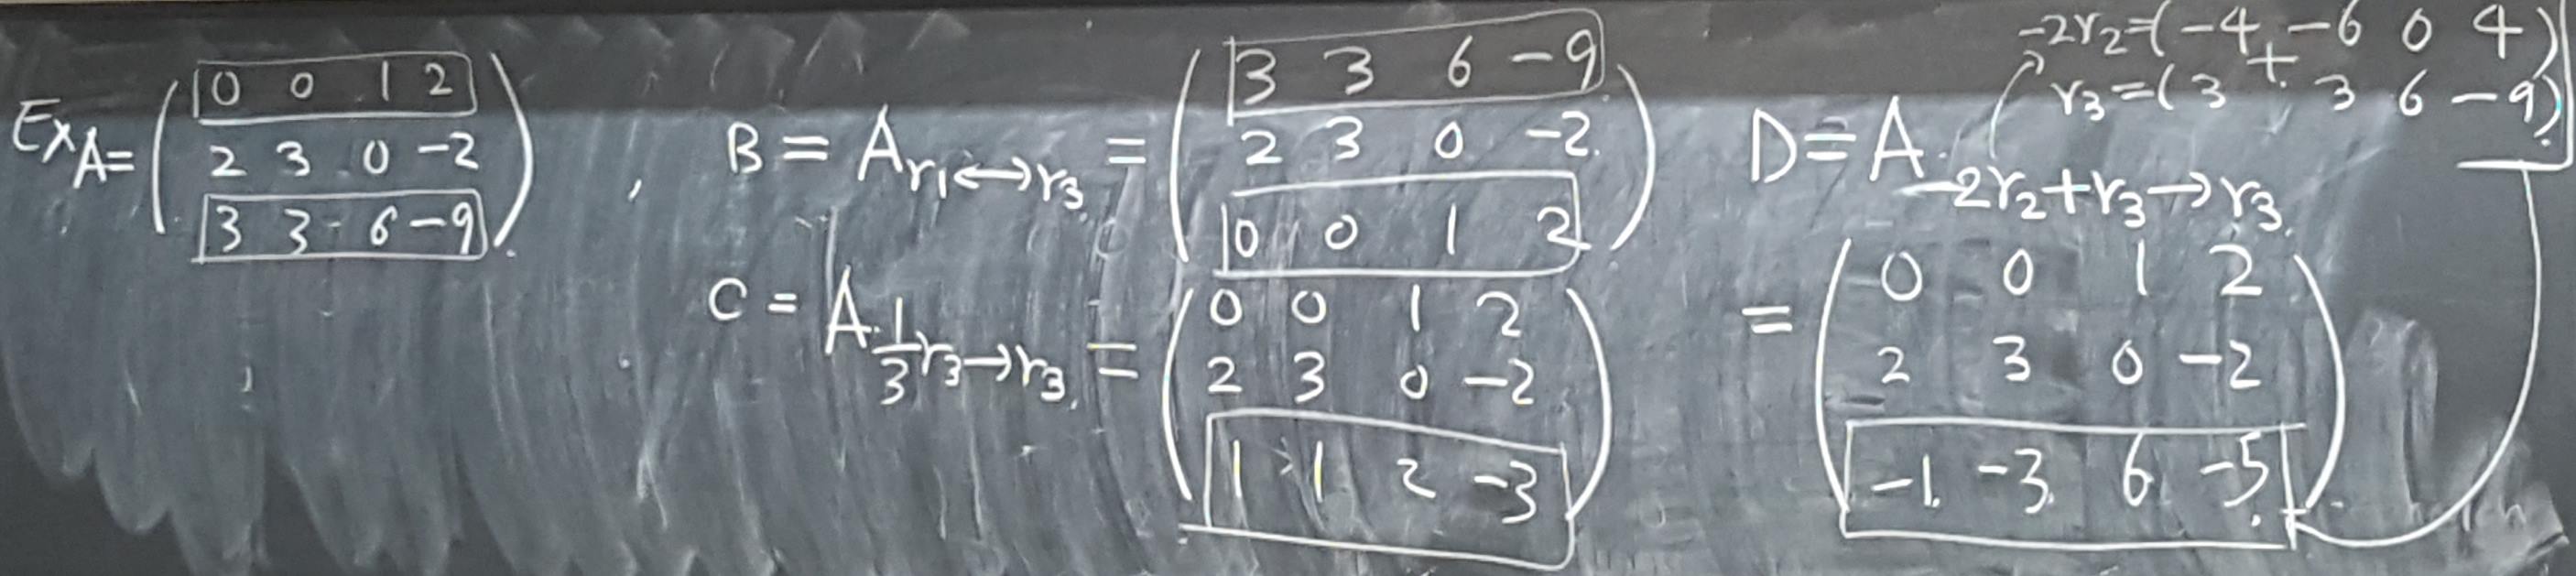 Ex A = ( 0 0 1 2
2 3 0 -2
3 3 6 -9 ) ,
B = A r₁↔r₃ = ( 3 3 6 -9
2 3 0 -2
0 0 1 2 )
C = A 1/3 r₃→r₃ = ( 0 0 1 2
2 3 0 -2
1 1 2 -3 )
-2r₂=(-4 -6 0 4)
+
r₃=(3 3 6 -9)
D = A -2r₂+r₃→r₃
= ( 0 0 1 2
2 3 0 -2
-1 -3 6 -5 )